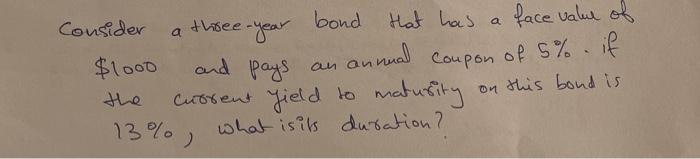 Consider a three-year bond that has a face value of
$1000 and pays an annual coupon of 5%. if
the current yield to maturity on this bond is
13%, what is its duration?